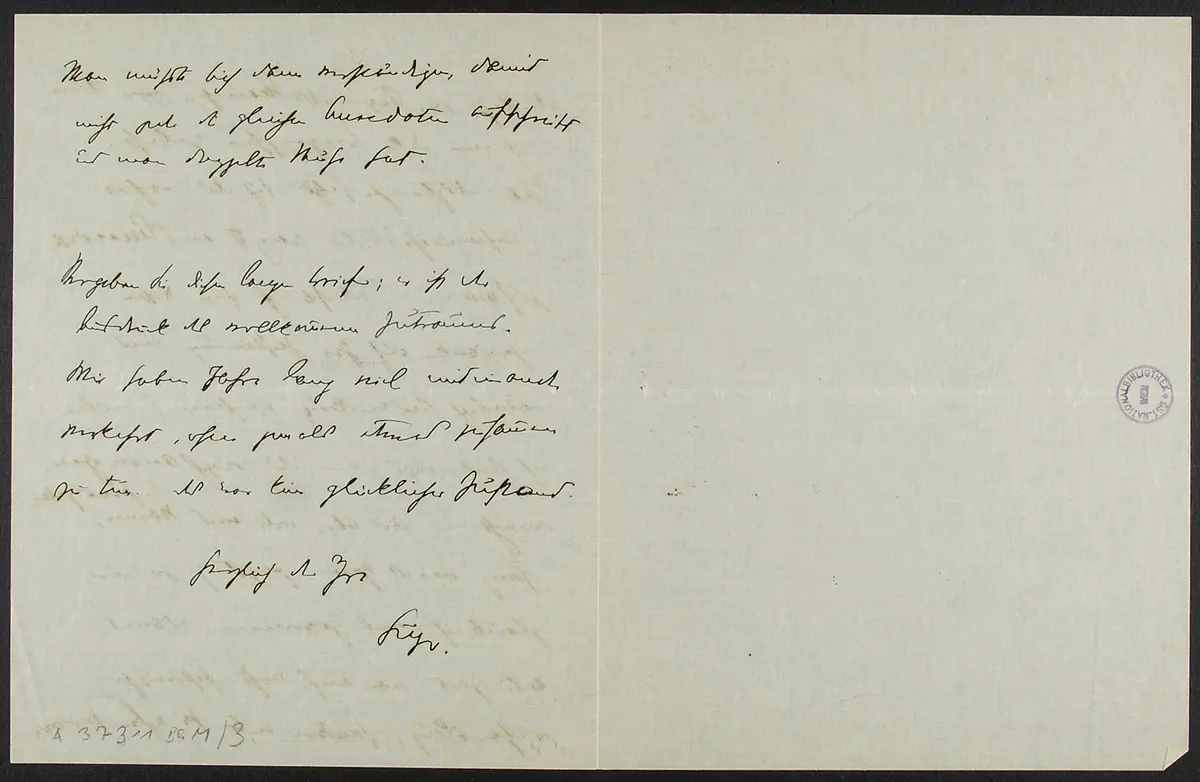 Man müßte sich dann verständigen, damit
nicht jeder die gleichen Anekdoten aufschreibt
und man doppelte Mühe hat.
Vergeben Sie diesen langen Brief; er ist der
Ausdruck des vollkommenen Zutrauens.
Wir haben Jahre lang viel miteinander
verkehrt, ohne jemals etwas zusammen
zu tun. Das war kein glücklicher Zustand.
Herzlich der Ihre
A 37311 BGM/3
NATIONALBIBLIOTHEK
WIEN